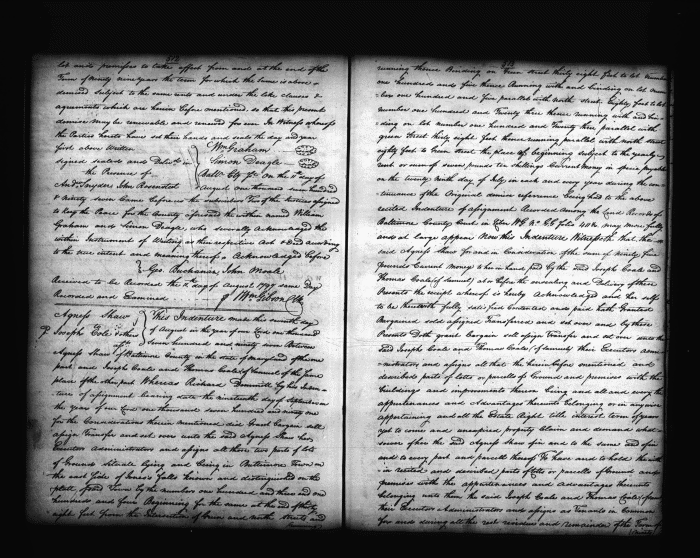 lot and premises to take effect from and at the end of the
Term of Ninety nine years the term for which the same is above
demised subject to the same rents and under the like clauses &
agreements which are herein before mentioned, so that the present
demise may be renewable and renewed for ever. In Witness whereof
the Parties hereto have set their hands and seals the day and year
first above Written
Wm Graham
signed sealed and Deliv'd in
Simon Deagle
the Presence of
Balt. Cty Ss. On the day of
Andw Snyder John Rosensteel
August one thousand seven hundred
& ninety seven Came before us the subscribers Two of the Justices assigned
to keep the Peace for the County aforesaid the within named William
Graham and Simon Deagle, who severally acknowledged the
within Instrument of Writing as their respective Act & Deed according
to the true intent and meaning thereof, & Acknowledged before
Geo. Buchanan, John Moale
Received to be Recorded the day of August 1797 same day
Recorded and Examined Wm Gibson Clk
Agness Shaw
This Indenture made this ninth day
Joseph Cole & other
of August in the year of our Lord one thousand
seven hundred and ninety seven Between
Agness Shaw of Baltimore County in the state of Maryland of the one
part and Joseph Coale and Thomas Coale (of Samuel) of the same
place of the other part Whereas Richard by his Inden-
ture of assignment bearing date the nineteenth day of September in
the year of our Lord one thousand seven hundred and ninety one
for the Consideration therein mentioned did Grant Bargain sell
assign Transfer and set over unto the said Agness Shaw her
Executors Administrators and assigns all those two parts of lots
of Ground situate lying and being in Baltimore Town on
the east side of Jones's Falls known and distinguished on the
plat of said Town by the number one hundred and three and one
hundred and four Beginning for the same at the end of thirty
eight feet from the Intersection of Green and North streets and
running thence Binding on Green street thirty eight feet to lot number
one hundred and five thence Running with and binding on lot num
ber one hundred and five parallel with North street Eighty feet to lot
number one hundred and Twenty three thence running with and bin-
ding on lot number one hundred and Twenty three parallel with
green street thirty eight feet thence running parallel with North street
eighty feet to Green street the place of beginning subject to the yearly
rent or sum of seven pounds ten shillings Current money in specie payable
on the twenty ninth day of July in each and every year during the con-
tinuance of the Original demise reference being had to the above
recited Indenture of assignment Recorded among the Land Records of
Baltimore County Court in Liber WG No folio 408 may more fully
and at large appear Now this Indenture Witnesseth that the
said Agness Shaw for and in Consideration of the sum of ninety five
pounds Current Money to her in hand paid by the said Joseph Coale and
Thomas Coale (of Samuel) at or before the sealing and Delivery of these
Presents the receipt whereof is hereby acknowledged and her self
to be therewith fully satisfied Contented and paid Hath Granted
Bargained sold assigned Transferred and set over and by these
Presents Doth grant Bargain sell assign Transfer and set over unto the
said Joseph Coale and Thomas Coale (of Samuel) their Executors admi-
nistrators and assigns all that the herein before mentioned and
described parts of lotts or parcells of Ground and premises with the
Buildings and improvements thereon being and all and every the
appurtenances and Advantages thereunto Belonging or in anywise
appertaining and all the Estate Right title interest term of years
yet to come and unexpired property Claim and demand what
soever of her the said Agness Shaw of in and to the same and of in
and to every part and parcell thereof To have and to hold the with
in recited and described parts of Lotts or parcells of Ground and
premises with the appurtenances and advantages thereunto
belonging unto them the said Joseph Coale and Thomas Coale (of Sam
Their Executors Administrators and assigns as Tenants in Common
for and during all the rest residue and remainder of the Term of